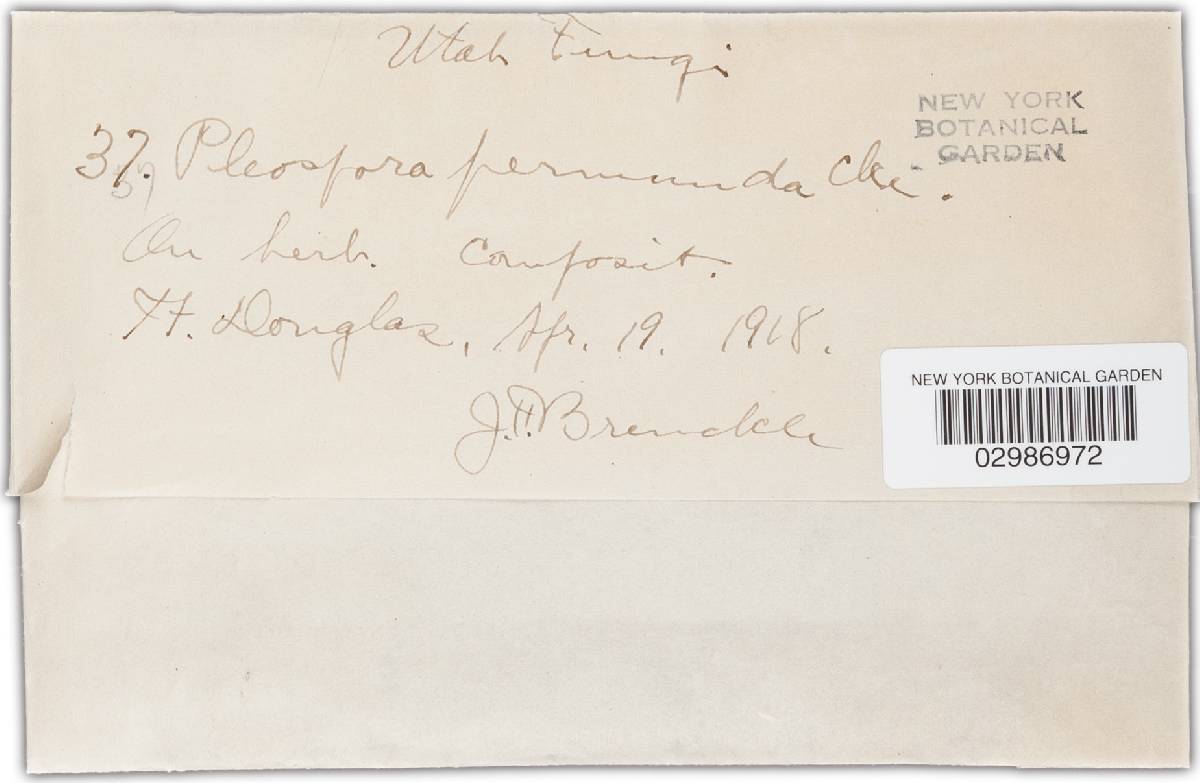 Utah Fungi
NEW YORK
BOTANICAL
GARDEN
37. Pleospora permunda Cke.
On herb. Composit.
Ft. Douglas, Apr. 19. 1918.
J.F. Brenckle
NEW YORK BOTANICAL GARDEN
02986972